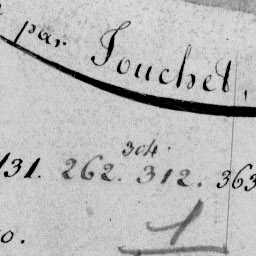 par Touchet,
304.
131. 262. 312. 363
1
0.